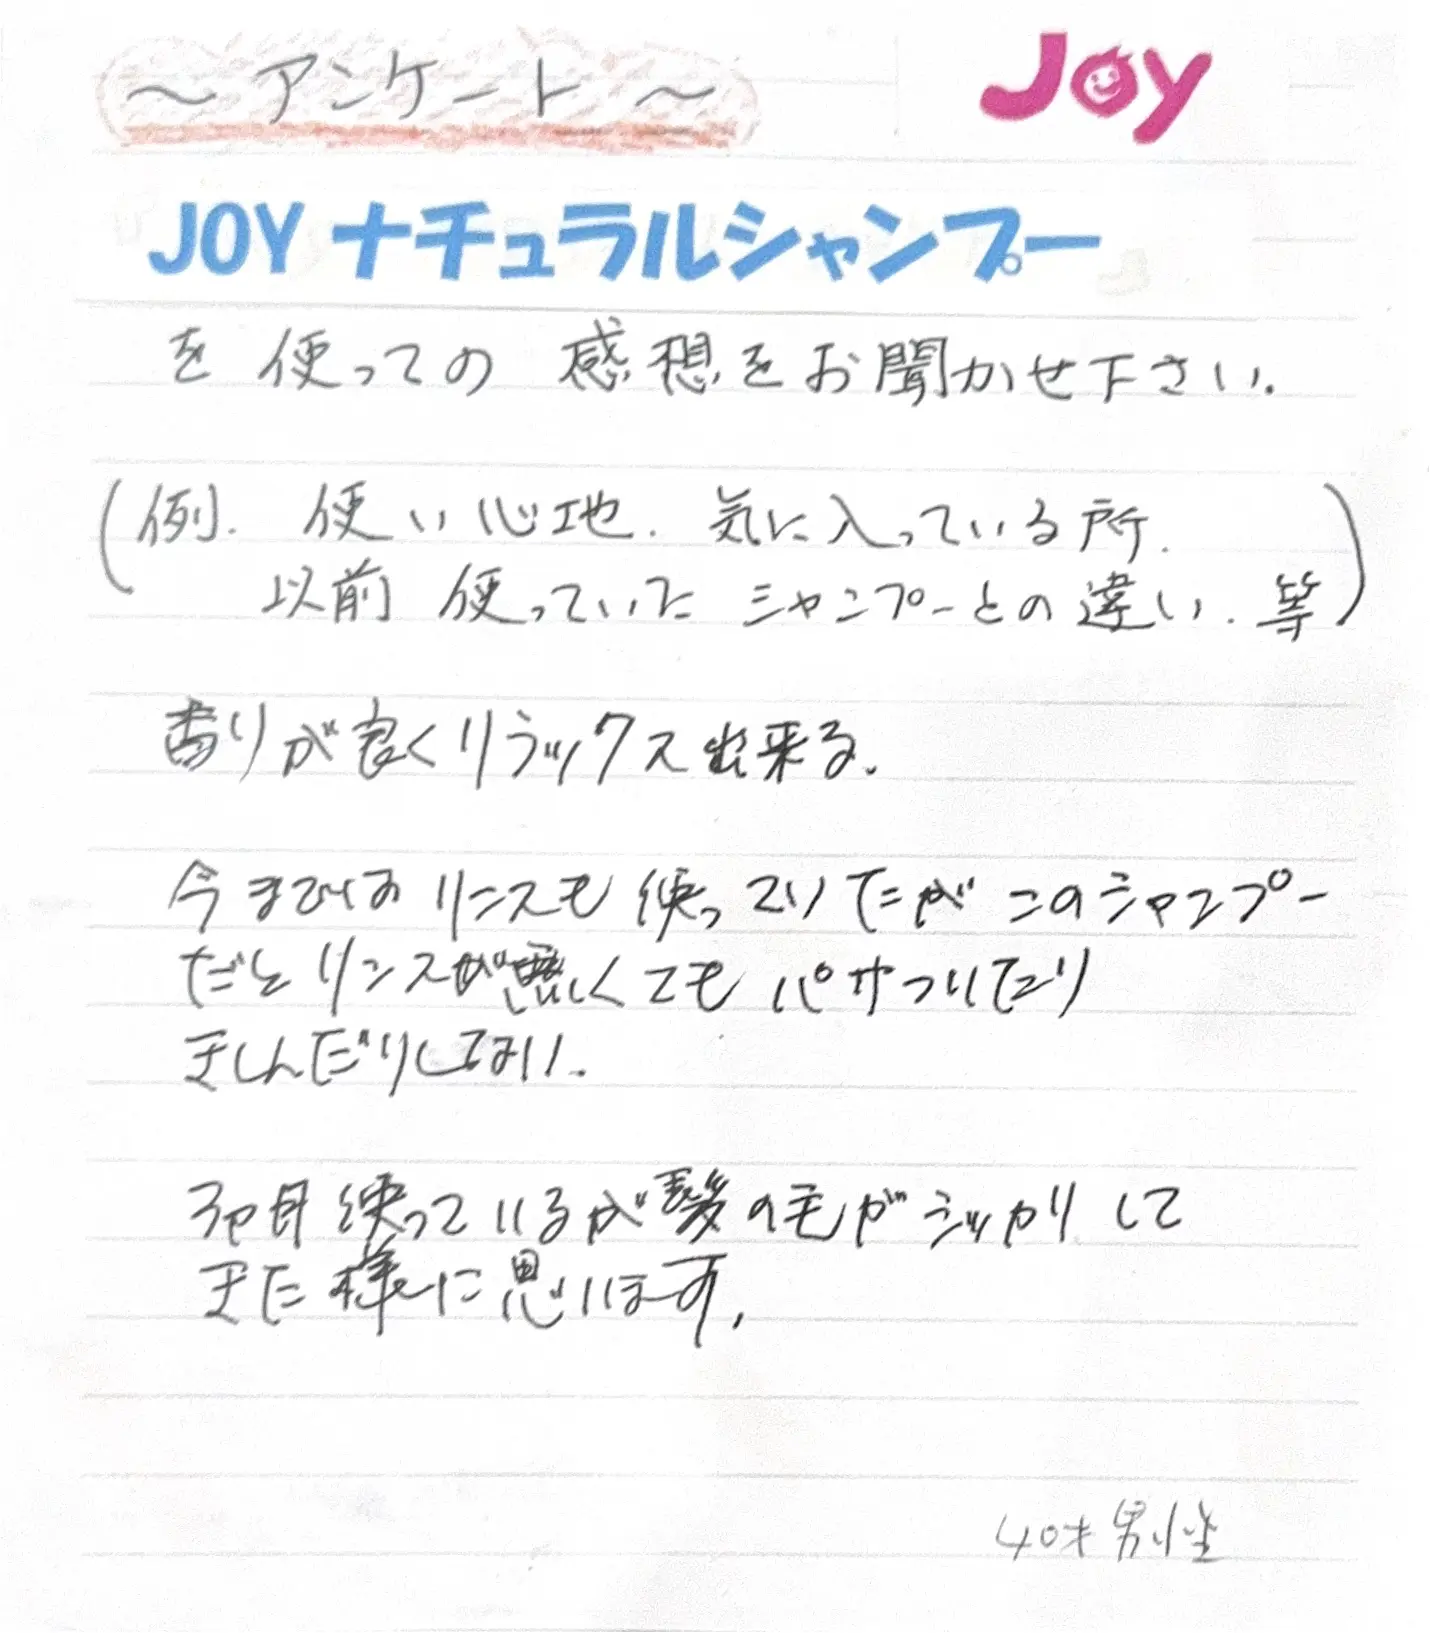 ～アンケート～
Joy
JOY ナチュラルシャンプー
を使っての感想をお聞かせ下さい.
(例. 使い心地. 気に入っている所.
以前使っていたシャンプーとの違い. 等)
香りが良くリラックス出来る.
今まではリンスも使っていたがこのシャンプー
だとリンスが無くてもパサついたり
きしんだりしない.
3ヶ月使っているが髪の毛がシッカリして
きた様に思います,
40才男性